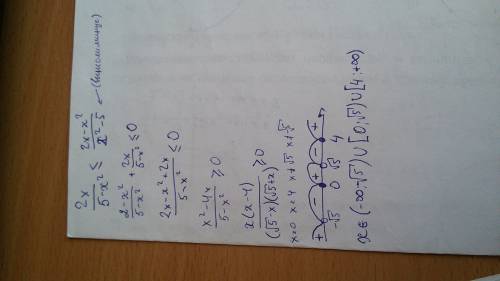 2x/(5-x²) ≤ (2x-x²)/(x²-5) ← (выносим минус)
(2-x²)/(5-x²) + 2x/(5-x²) ≤ 0
(2x-x²+2x)/(5-x²) ≤ 0
(x²-4x)/(5-x²) ≥ 0
x(x-4)/((√5-x)(√5+x)) ≥ 0
x=0 x=4 x≠√5 x≠-√5
+ - + - +
-√5 0 √5 4
x∈(-∞;-√5)∪[0;√5)∪[4;+∞)